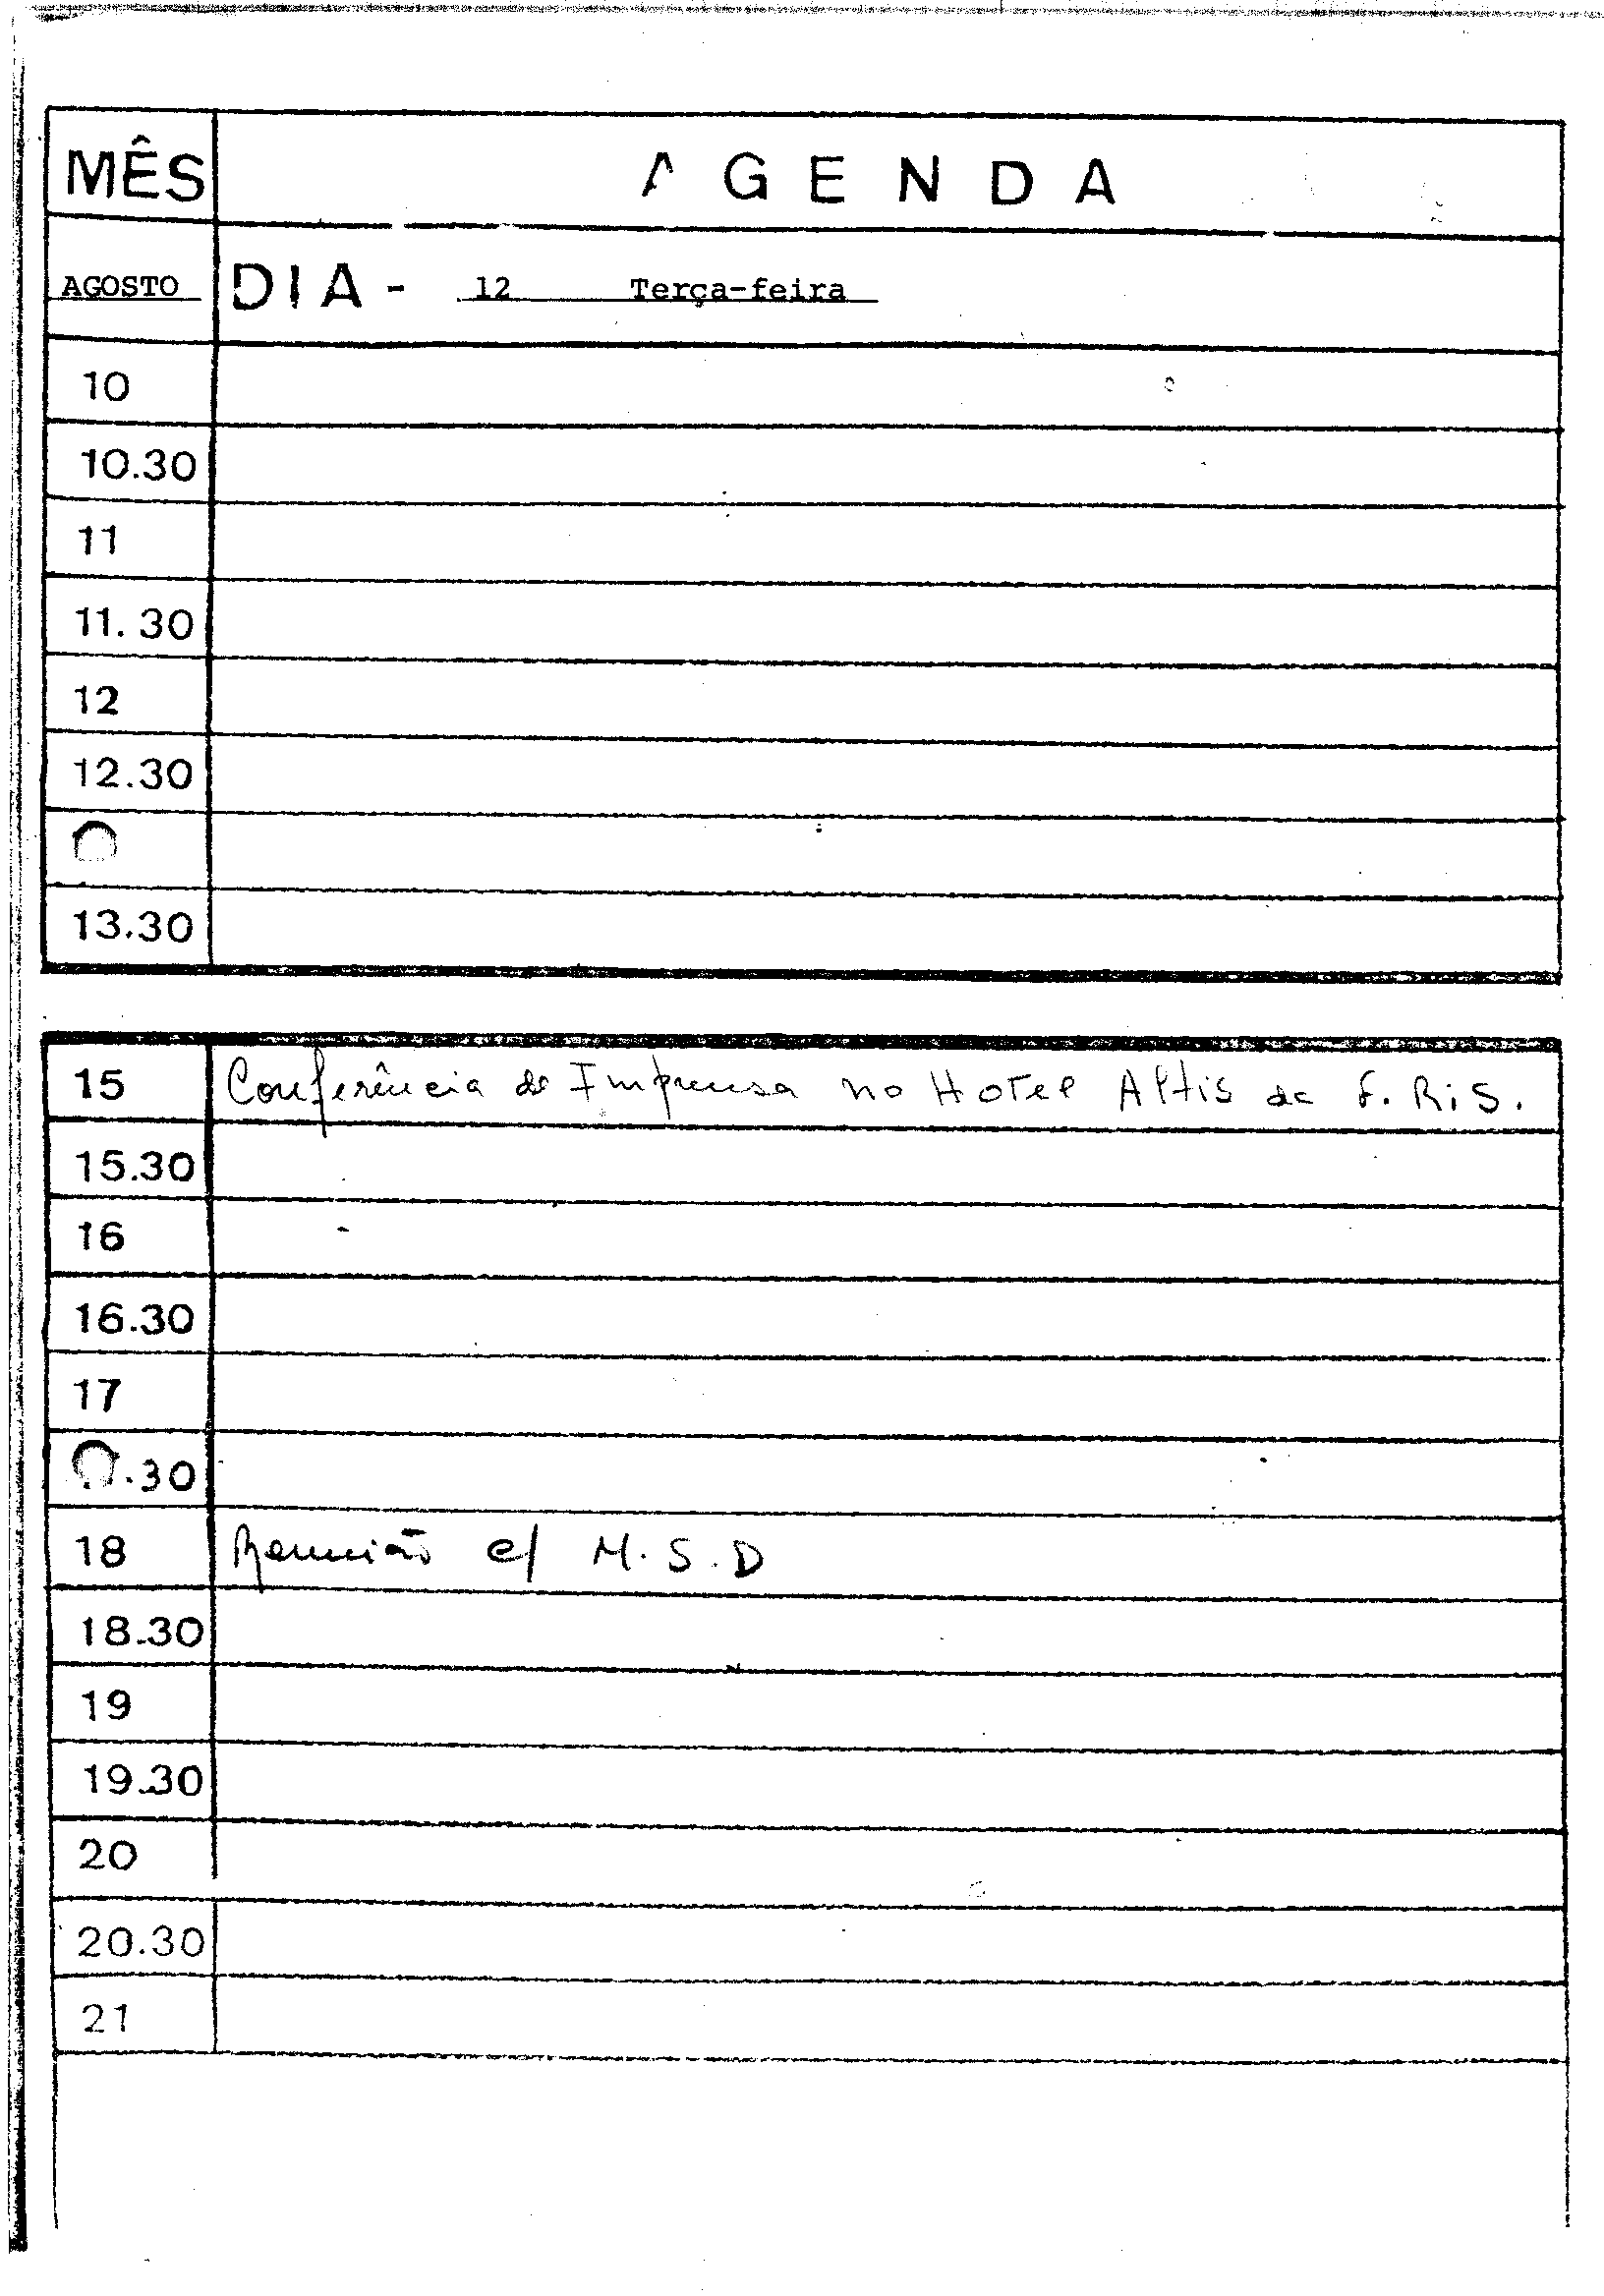 MÊS AGENDA
AGOSTO DIA - 12 Terça-feira
10
10.30
11
11.30
12
12.30
13.30
15 Conferência de Imprensa no Hotel Altis da F.R.S.
15.30
16
16.30
17
.30
18 Reunião c/ M.S.D
18.30
19
19.30
20
20.30
21